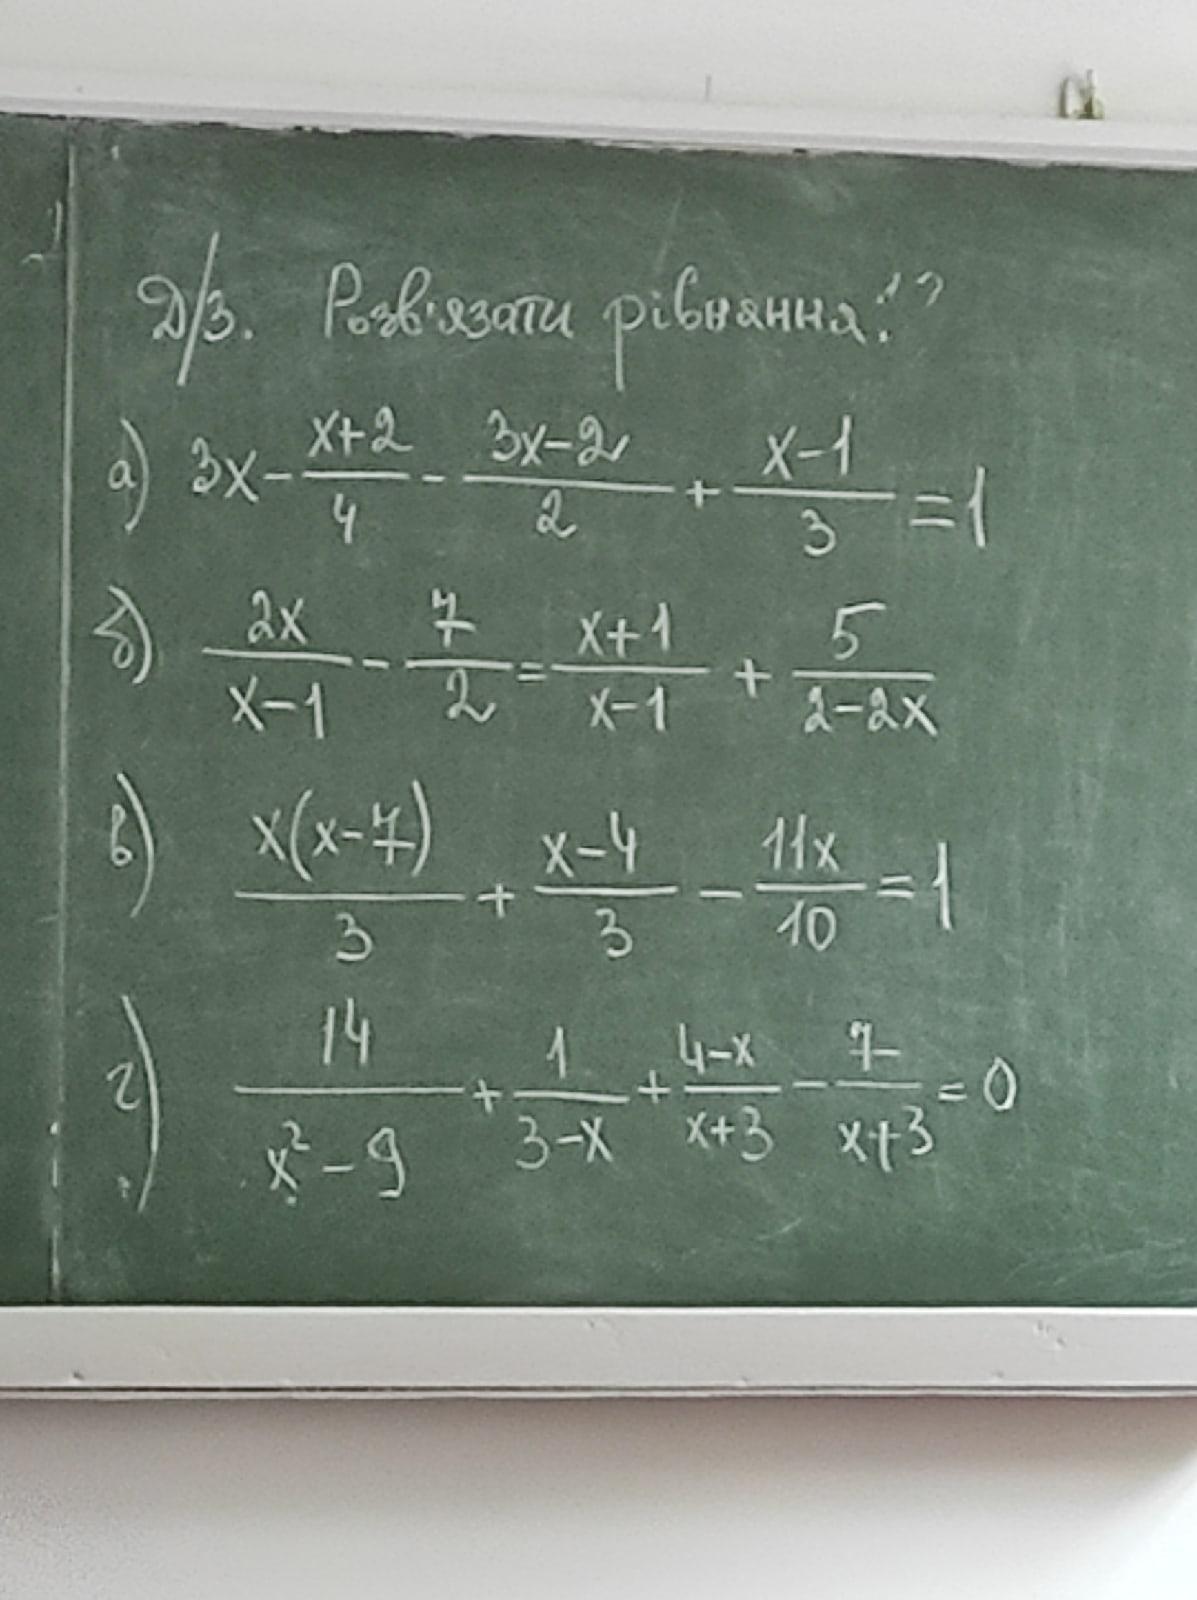 Д/З. Розв'язати рівняння:
а) 3x - \frac{x+2}{4} - \frac{3x-2}{2} + \frac{x-1}{3} = 1
б) \frac{2x}{x-1} - \frac{7}{2} = \frac{x+1}{x-1} + \frac{5}{2-2x}
в) \frac{x(x-7)}{3} + \frac{x-4}{3} - \frac{11x}{10} = 1
г) \frac{14}{x^2-9} + \frac{1}{3-x} + \frac{4-x}{x+3} - \frac{7}{x+3} = 0